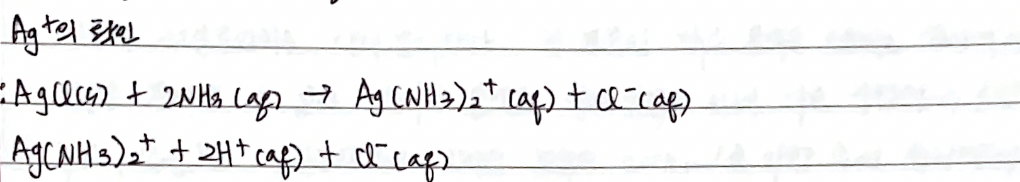 Ag⁺의 확인
: AgCl(s) + 2NH₃ (aq) → Ag(NH₃)₂⁺ (aq) + Cl⁻(aq)
Ag(NH₃)₂⁺ + 2H⁺(aq) + Cl⁻(aq)